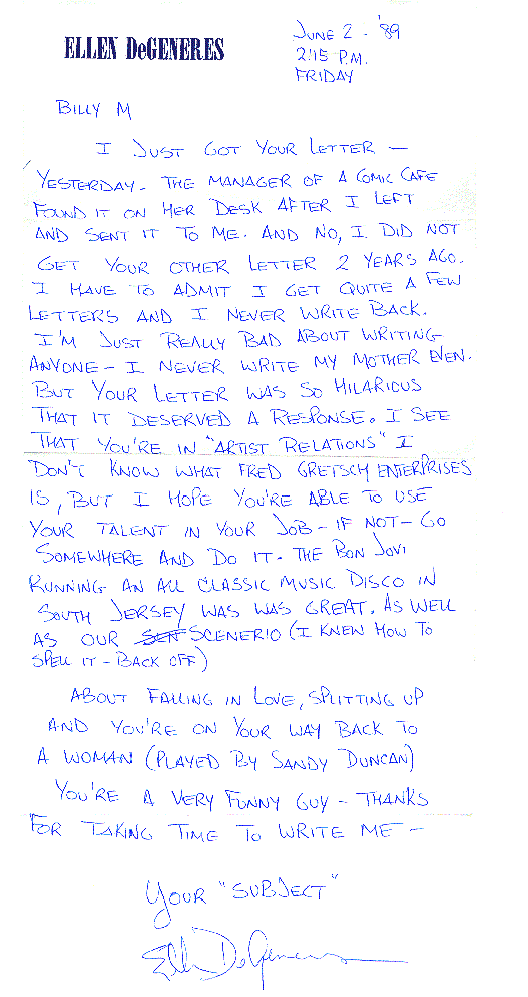 ELLEN DeGENERES
JUNE 2 - '89
2:15 P.M.
FRIDAY
BILLY M
I JUST GOT YOUR LETTER —
YESTERDAY - THE MANAGER OF A COMIC CAFE
FOUND IT ON HER DESK AFTER I LEFT
AND SENT IT TO ME. AND NO, I DID NOT
GET YOUR OTHER LETTER 2 YEARS AGO.
I HAVE TO ADMIT I GET QUITE A FEW
LETTERS AND I NEVER WRITE BACK.
I'M JUST REALLY BAD ABOUT WRITING
ANYONE - I NEVER WRITE MY MOTHER EVEN.
BUT YOUR LETTER WAS SO HILARIOUS
THAT IT DESERVED A RESPONSE. I SEE
THAT YOU'RE IN "ARTIST RELATIONS" I
DON'T KNOW WHAT FRED GRETSCH ENTERPRISES
IS, BUT I HOPE YOU'RE ABLE TO USE
YOUR TALENT IN YOUR JOB - IF NOT - GO
SOMEWHERE AND DO IT - THE BON JOVI
RUNNING AN ALL CLASSIC MUSIC DISCO IN
SOUTH JERSEY WAS WAS GREAT. AS WELL
AS OUR SCENERIO (I KNEW HOW TO
SPELL IT - BACK OFF)
ABOUT FALLING IN LOVE, SPLITTING UP
AND YOU'RE ON YOUR WAY BACK TO
A WOMAN (PLAYED BY SANDY DUNCAN)
YOU'RE A VERY FUNNY GUY - THANKS
FOR TAKING TIME TO WRITE ME -
YOUR "SUBJECT"
Ellen DeGeneres